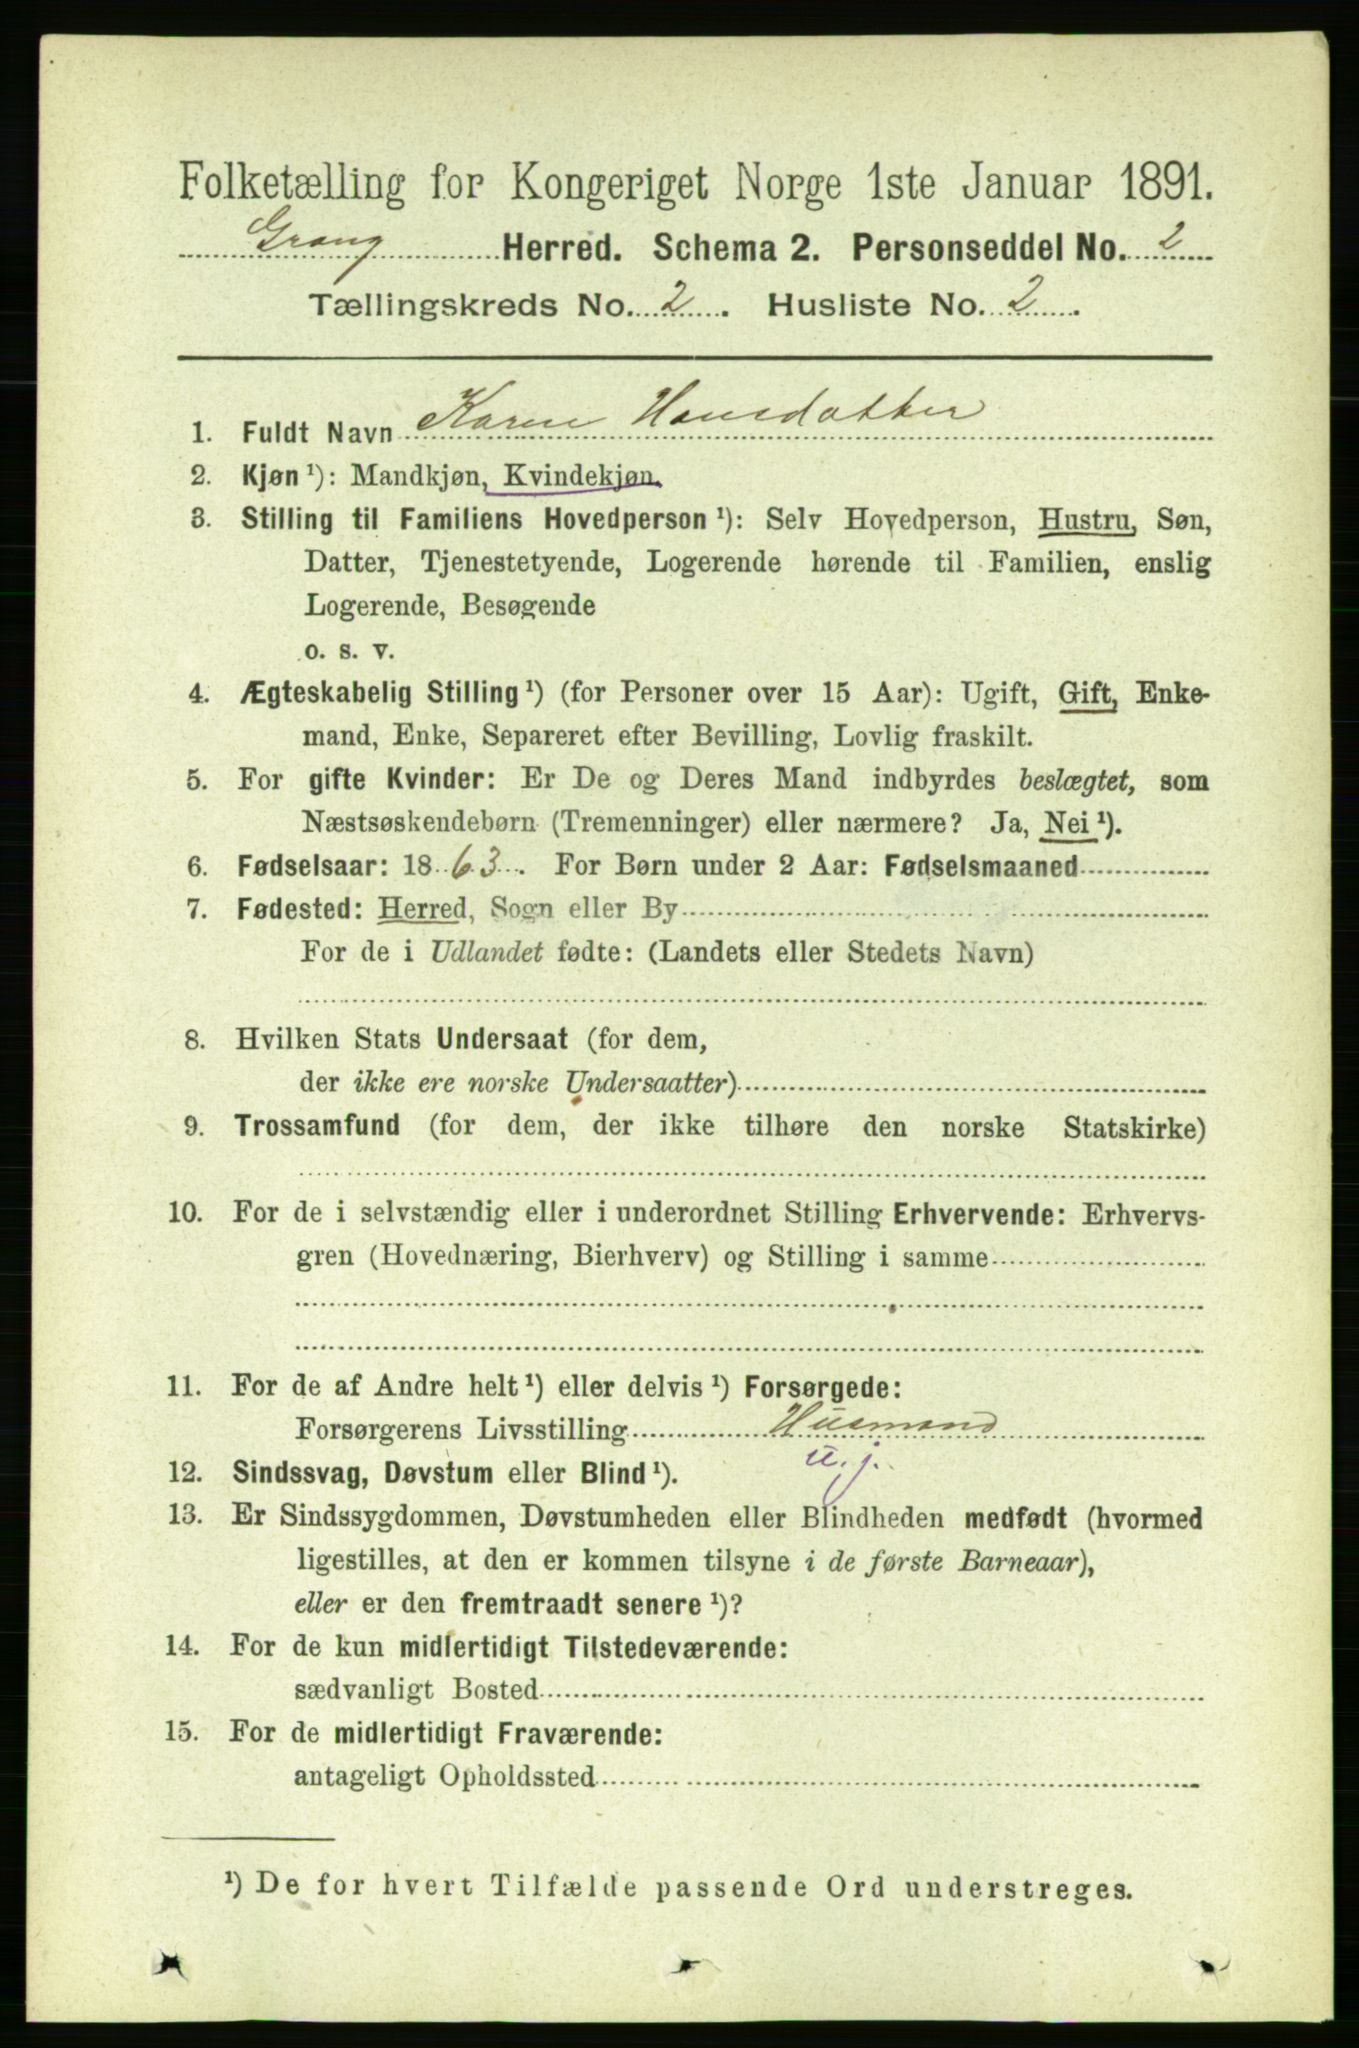 Folketælling for Kongeriget Norge 1ste Januar 1891.
Grong Herred. Schema 2. Personseddel No. 2
Tællingskreds No. 2. Husliste No. 2.
1. Fuldt Navn Karen Hansdatter
2. Kjøn ¹): Mandkjøn, Kvindekjøn.
3. Stilling til Familiens Hovedperson ¹): Selv Hovedperson, Hustru, Søn,
Datter, Tjenestetyende, Logerende hørende til Familien, enslig
Logerende, Besøgende
o. s. v.
4. Ægteskabelig Stilling ¹) (for Personer over 15 Aar): Ugift, Gift, Enke-
mand, Enke, Separeret efter Bevilling, Lovlig fraskilt.
5. For gifte Kvinder: Er De og Deres Mand indbyrdes beslægtet, som
Næstsøskendebørn (Tremenninger) eller nærmere? Ja, Nei ¹).
6. Fødselsaar: 1863. For Børn under 2 Aar: Fødselsmaaned
7. Fødested: Herred, Sogn eller By
For de i Udlandet fødte: (Landets eller Stedets Navn)
8. Hvilken Stats Undersaat (for dem,
der ikke ere norske Undersaatter)
9. Trossamfund (for dem, der ikke tilhøre den norske Statskirke)
10. For de i selvstændig eller i underordnet Stilling Erhvervende: Erhvervs-
gren (Hovednæring, Bierhverv) og Stilling i samme
11. For de af Andre helt ¹) eller delvis ¹) Forsørgede:
Forsørgerens Livsstilling Husmand
u. j.
12. Sindssvag, Døvstum eller Blind ¹).
13. Er Sindssygdommen, Døvstumheden eller Blindheden medfødt (hvormed
ligestilles, at den er kommen tilsyne i de første Barneaar),
eller er den fremtraadt senere ¹)?
14. For de kun midlertidigt Tilstedeværende:
sædvanligt Bosted
15. For de midlertidigt Fraværende:
antageligt Opholdssted
¹) De for hvert Tilfælde passende Ord understreges.